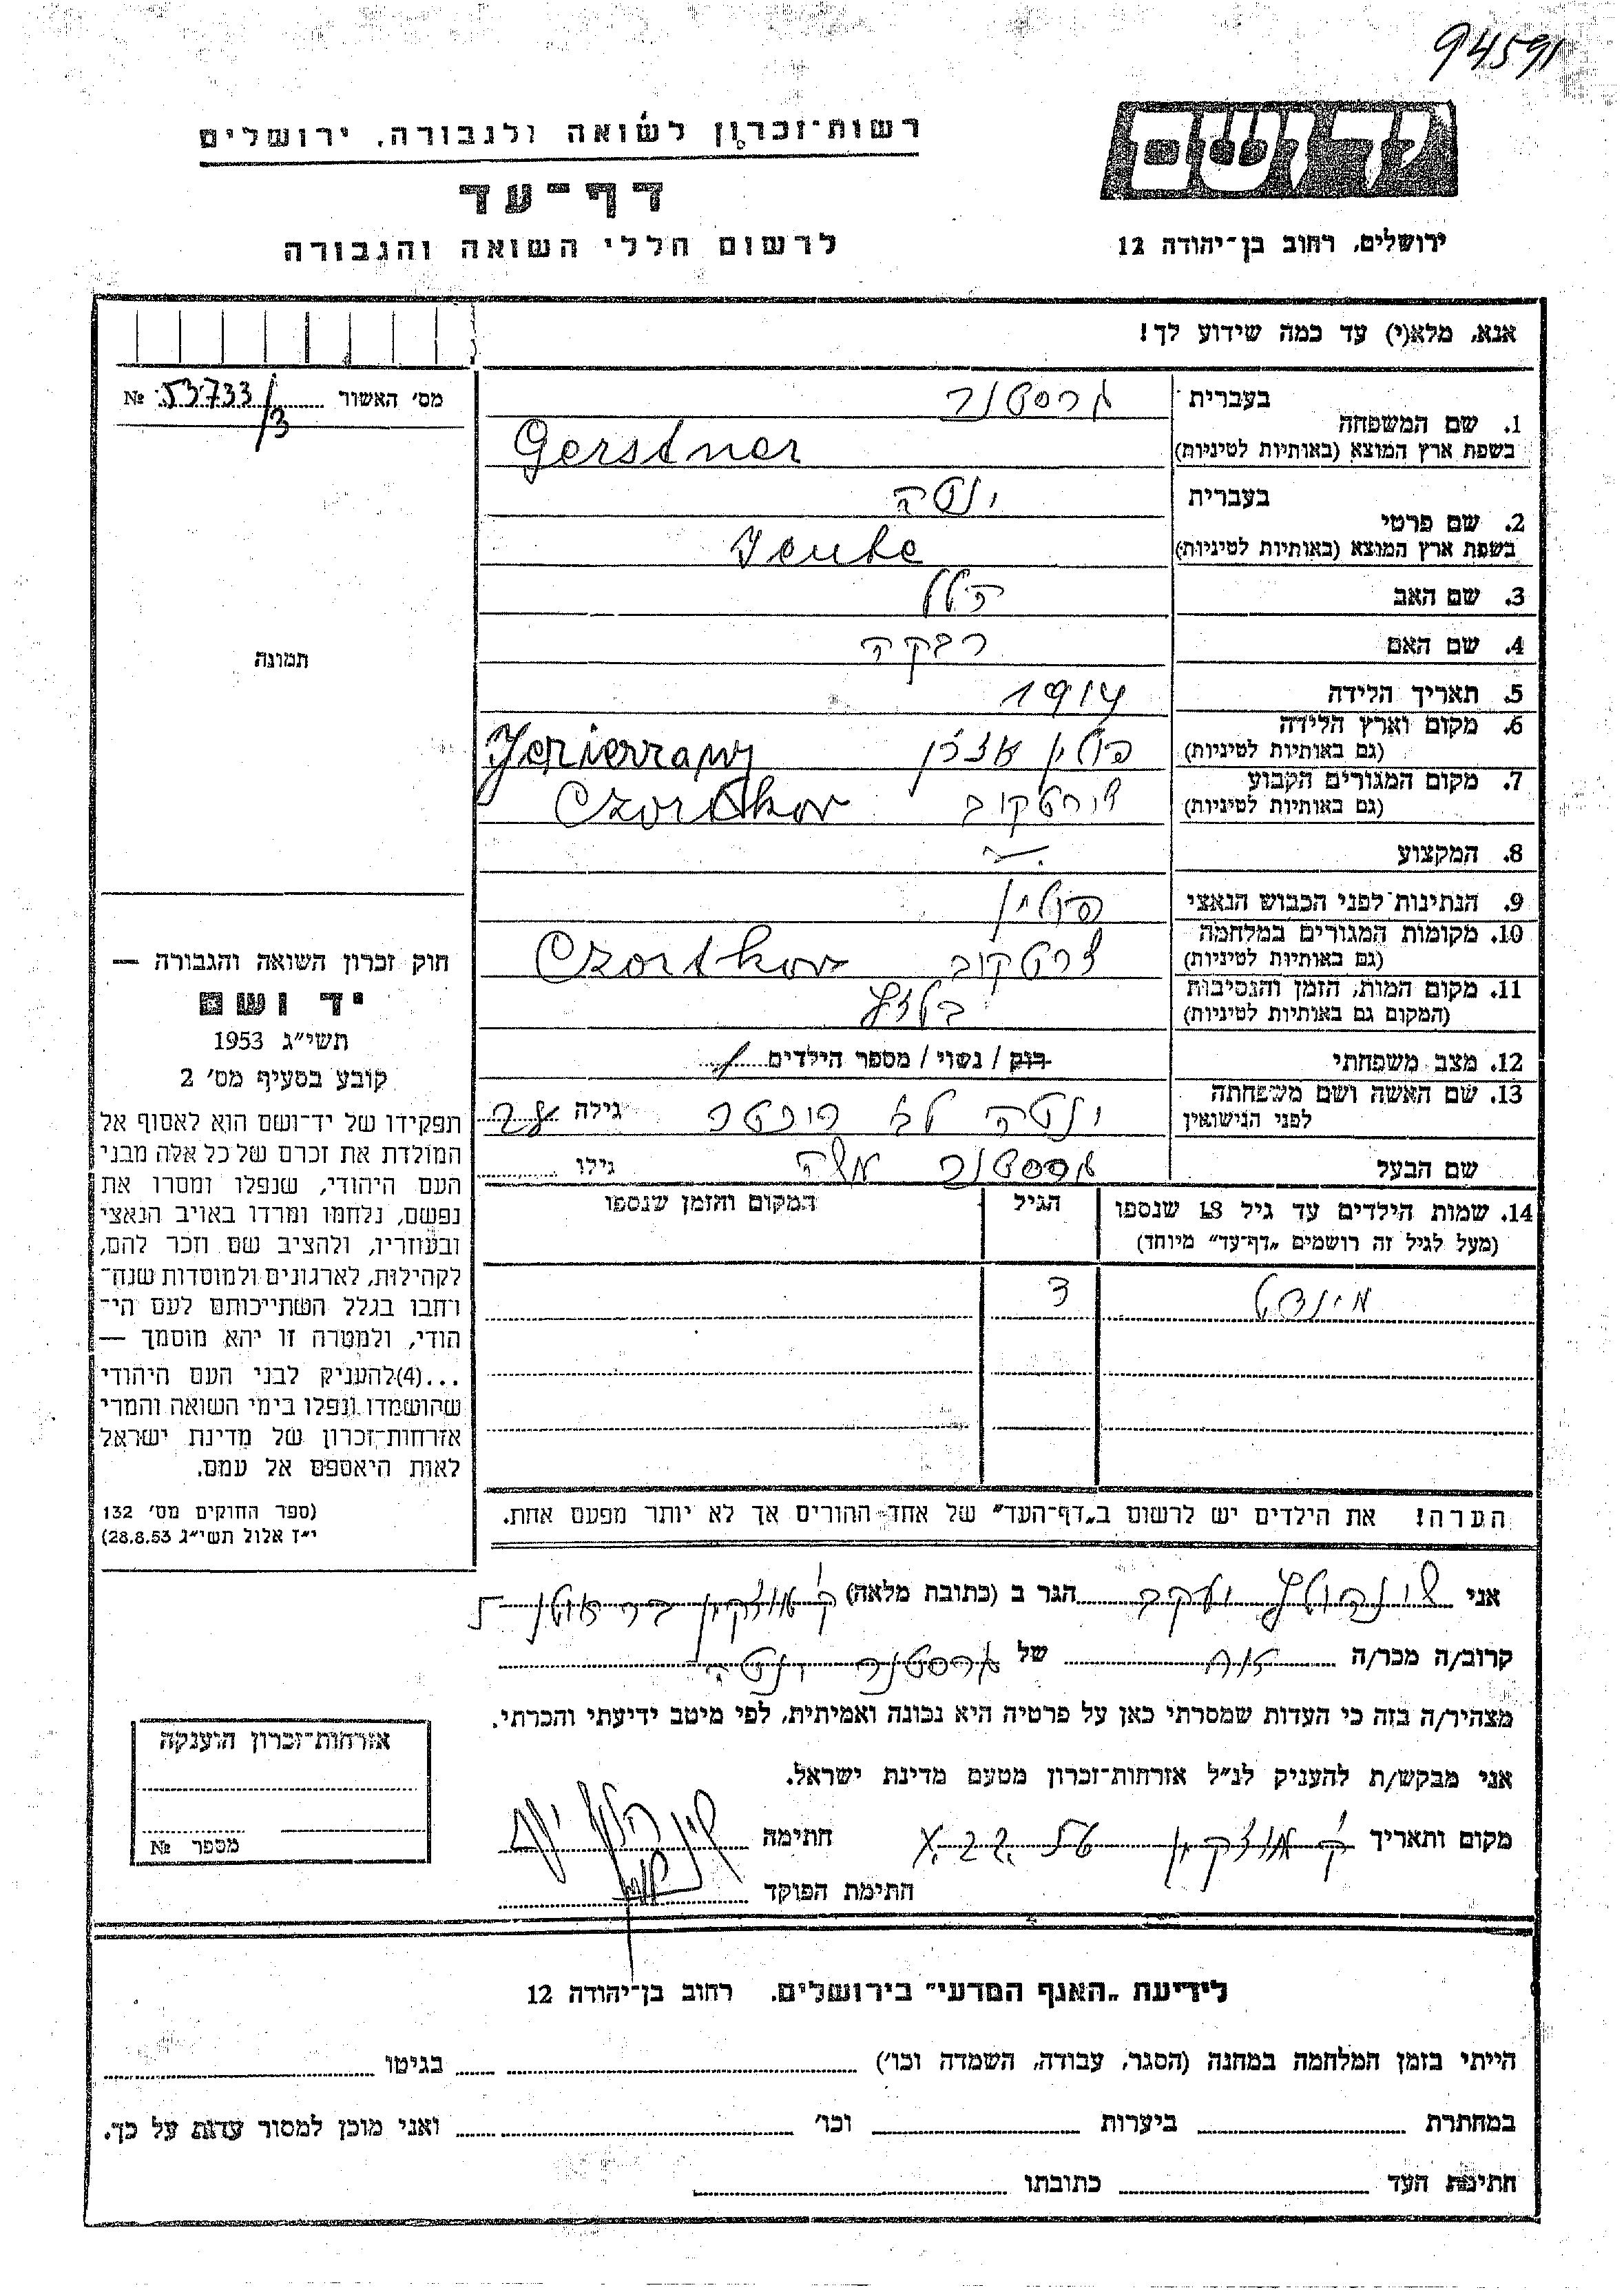 94591
רשות־זכרון לשואה ולגבורה, ירושלים
דף־עד
לרשום חללי השואה והגבורה
יד ושם
ירושלים, רחוב בן־יהודה 12
אנא, מלא(י) עד כמה שידוע לך!
מס' האשור № 53733/3
תמונה
1. שם המשפחה בעברית גרסטנר
בשפת ארץ המוצא (באותיות לטיניות) Gerstner
2. שם פרטי בעברית ינטה
בשפת ארץ המוצא (באותיות לטיניות) Jente
3. שם האב הלל
4. שם האם רבקה
5. תאריך הלידה 1914
6. מקום וארץ הלידה (גם באותיות לטיניות) פולין Jezierzany
7. מקום המגורים הקבוע (גם באותיות לטיניות) צורטקוב Czortkov
8. המקצוע
9. הנתינות לפני הכבוש הנאצי פולין
10. מקומות המגורים במלחמה (גם באותיות לטיניות) צרטקוב Czortkov
11. מקום המות, הזמן והנסיבות (המקום גם באותיות לטיניות) בלזץ
12. מצב משפחתי רוק / נשוי / מספר הילדים 1
13. שם האשה ושם משפחתה לפני הנישואין ינטה לבית גילה
שם הבעל גרסטנר משה גילו
14. שמות הילדים עד גיל 18 שנספו (מעל לגיל זה רושמים „דף־עד" מיוחד) הגיל המקום והזמן שנספו
מינדל 3
הערה! את הילדים יש לרשום ב„דף־העד" של אחד ההורים אך לא יותר מפעם אחת.
חוק זכרון השואה והגבורה —
יד ושם
תשי"ג 1953
קובע בסעיף מס' 2
תפקידו של יד־ושם הוא לאסוף אל
המולדת את זכרם של כל אלה מבני
העם היהודי, שנפלו ומסרו את
נפשם, נלחמו ומרדו באויב הנאצי
ובעוזריו, ולהציב שם וזכר להם,
לקהילות, לארגונים ולמוסדות שנח־
רחבו בגלל השתייכותם לעם הי־
הודי, ולמטרה זו יהא מוסמך —
...(4)להעניק לבני העם היהודי
שהושמדו ונפלו בימי השואה והמרי
אזרחות־זכרון של מדינת ישראל
לאות היאספם אל עמם.
(ספר החוקים מס' 132
י"ז אלול תשי"ג 28.8.53)
אני יעקב הגר ב (כתובת מלאה) ק' מוצקין
קרוב/ה מכר/ה של גרסטנר ינטה
מצהיר/ה בזה כי העדות שמסרתי כאן על פרטיה היא נכונה ואמיתית, לפי מיטב ידיעתי והכרתי.
אני מבקש/ת להעניק לנ"ל אזרחות־זכרון מטעם מדינת ישראל.
מקום ותאריך ק' מוצקין חתימה
חתימת הפוקד
אזרחות־זכרון הוענקה
מספר №
לידיעת „האגף המדעי" בירושלים. רחוב בן־יהודה 12
הייתי בזמן המלחמה במחנה (הסגר, עבודה, השמדה וכו') בגיטו
במחתרת ביערות וכו' ואני מוכן למסור עדות על כך.
חתימת העד כתובתו